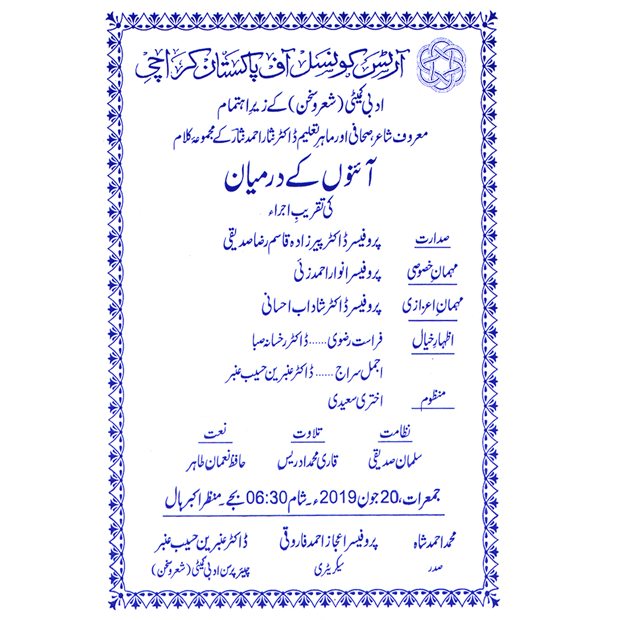 آرٹس کونسل آف پاکستان کراچی
ادبی کمیٹی (شعر و سخن) کے زیرِ اہتمام
معروف شاعر، صحافی اور ماہرِ تعلیم ڈاکٹر نثار احمد نثار کے مجموعۂ کلام
آئنوں کے درمیان
کی تقریبِ اجراء
صدارت پروفیسر ڈاکٹر پیرزادہ قاسم رضا صدیقی
مہمانِ خصوصی پروفیسر انوار احمد زئی
مہمانِ اعزازی پروفیسر ڈاکٹر شاداب احسانی
اظہارِ خیال فراست رضوی ...... ڈاکٹر رخسانہ صبا
اجمل سراج ...... ڈاکٹر عنبرین حسیب عنبر
منظوم اختر سعیدی
نظامت تلاوت نعت
سلمان صدیقی قاری محمد ادریس حافظ نعمان طاہر
جمعرات، 20 جون 2019ء۔ شام 06:30 بجے۔ منظر اکبر ہال
محمد احمد شاہ پروفیسر اعجاز احمد فاروقی ڈاکٹر عنبرین حسیب عنبر
صدر سیکریٹری چیئرپرسن ادبی کمیٹی (شعر و سخن)